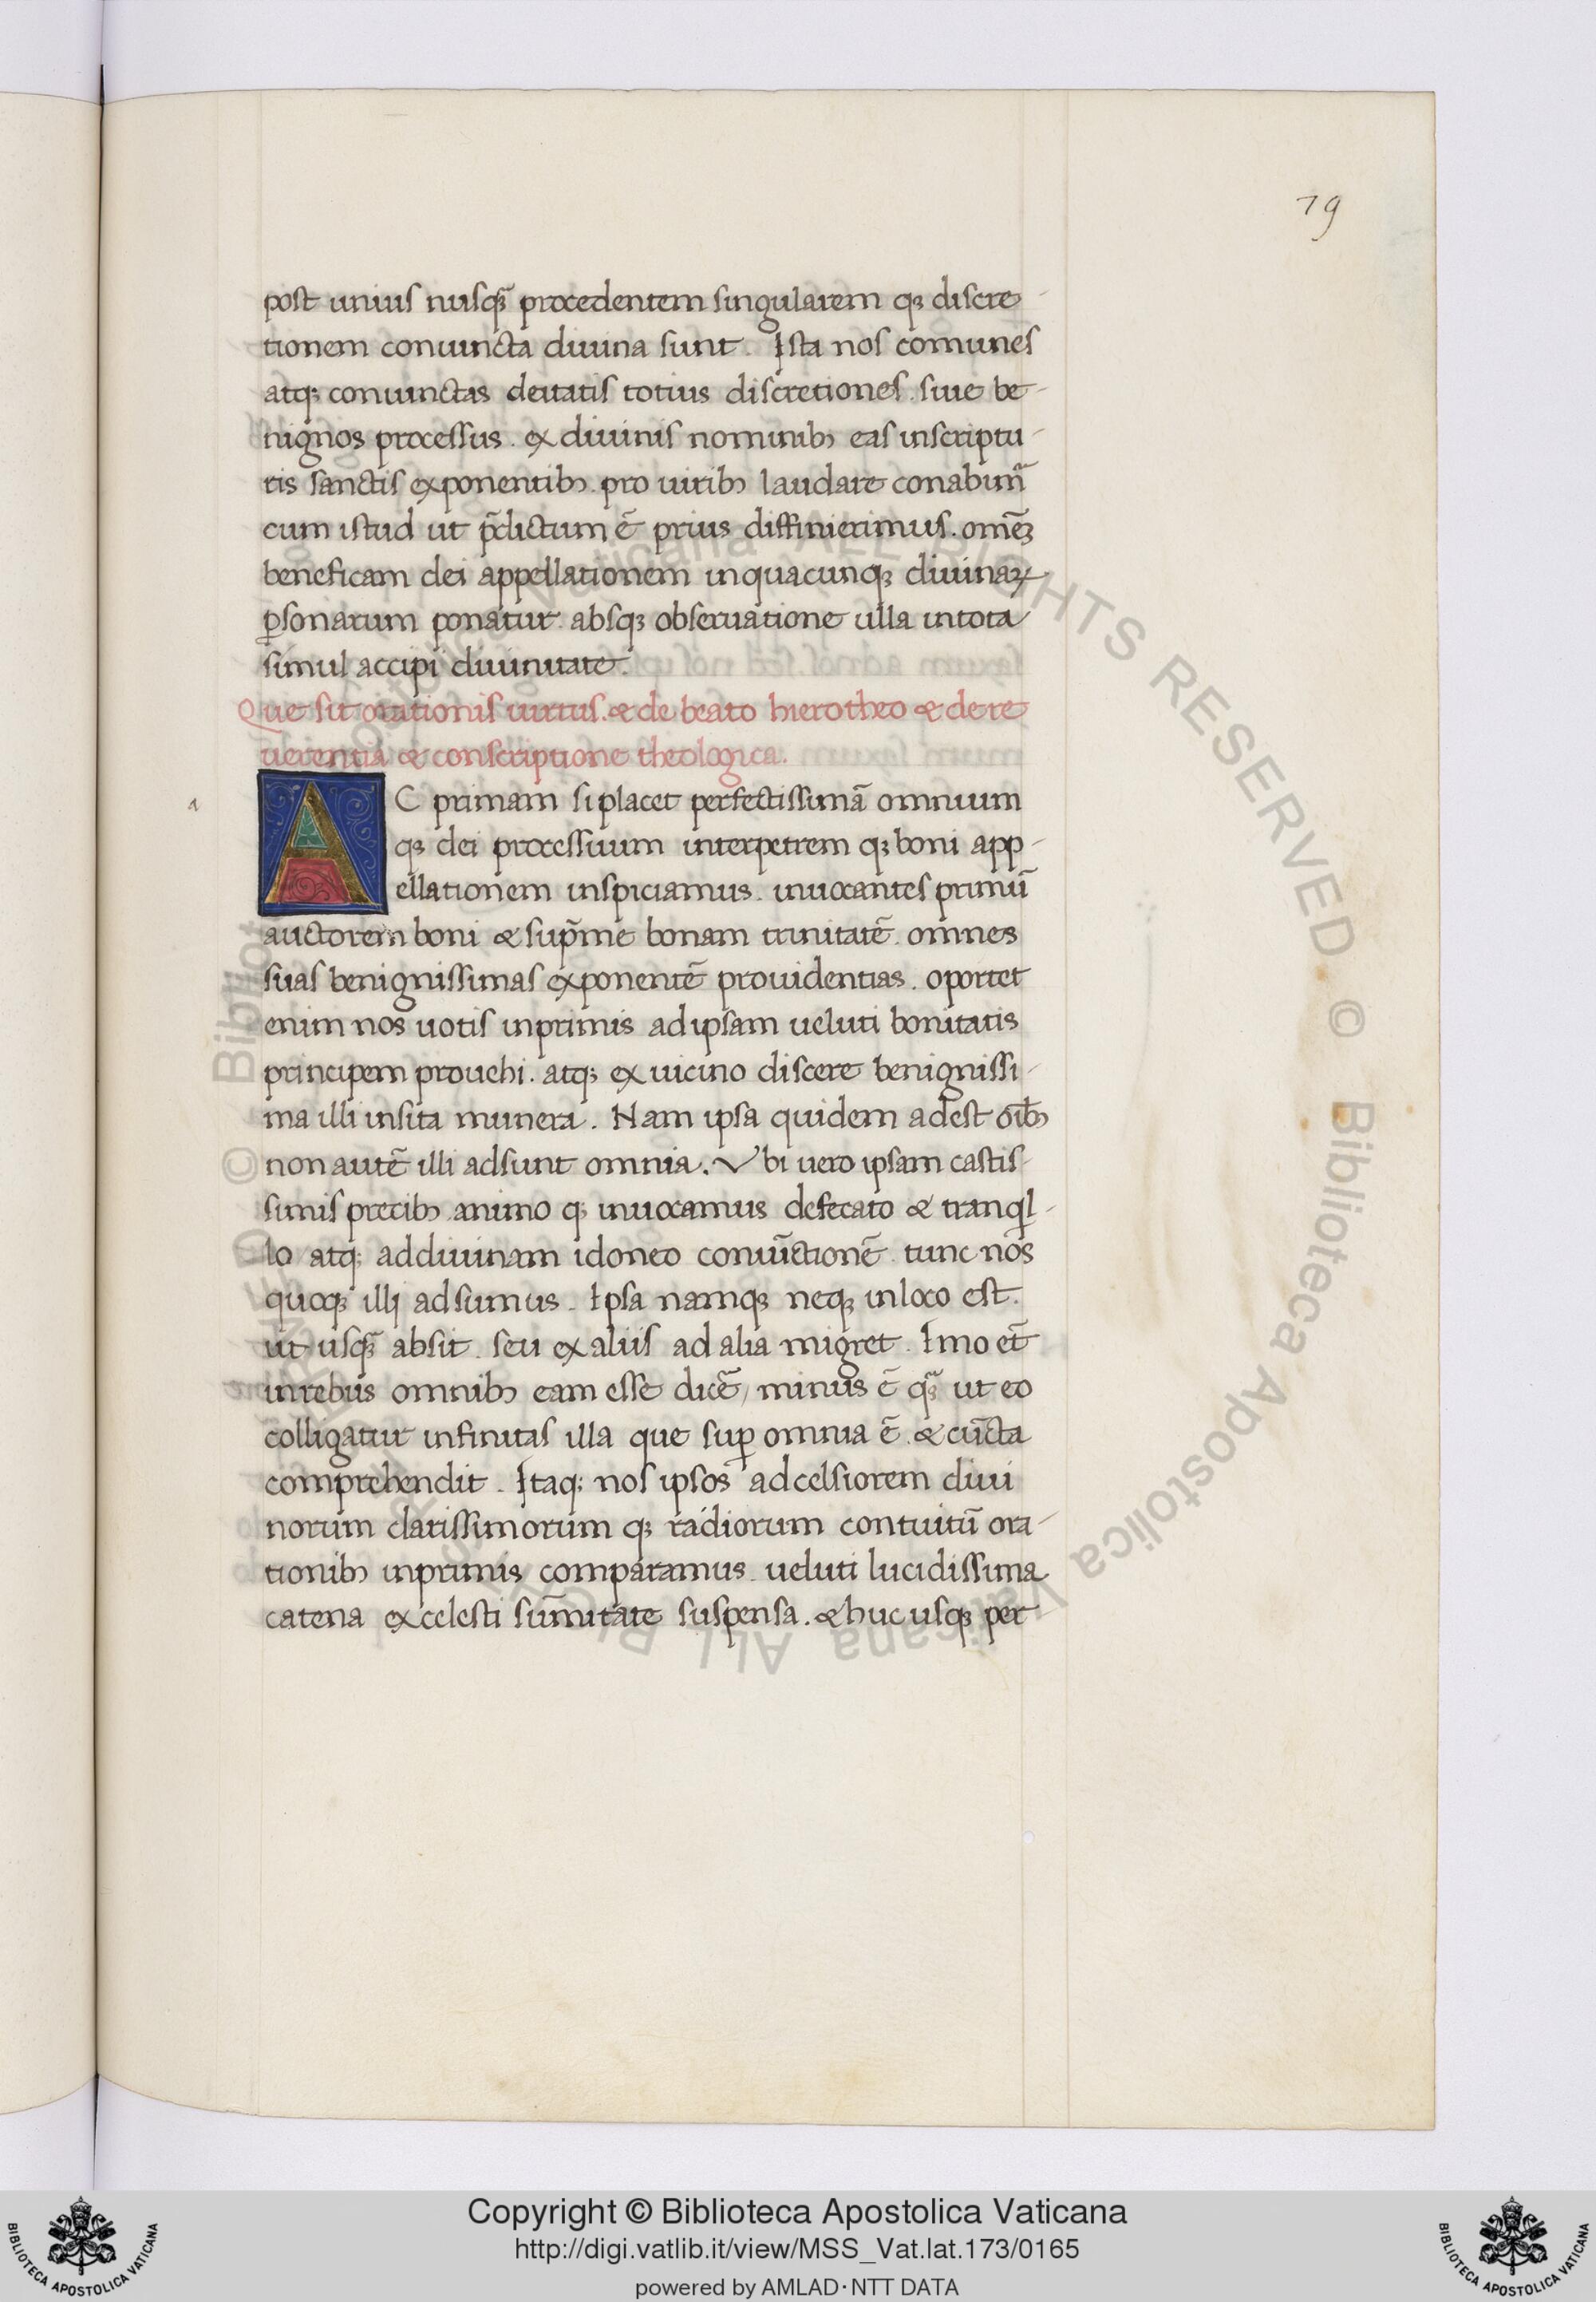 79
post unius nusqȝ̃ procedentem singularem qȝ discre-
tionem coniuncta diuina sunt. Ista nos comunes
atqȝ coniunctas deitatis totius discretiones. siue be-
nignos processus. ex diuinis nominibꝫ eas inscriptu-
ris sanctis exponentibꝫ. pro uiribꝫ laudare conabim̃
cum istud ut p̃dictum ẽ prius diffinierimus. omẽȝ
beneficam dei appellationem inquacunqȝ diuinaꝝ
ꝑsonarum ponatur. absqȝ obseruatione ulla intota
simul accipi diuinitate.
Que sit orationis uirtus. & de beato hierotheo & de re
uerentia & conscriptione theologica.
a
AC primam si placet perfectissimã omnium
qȝ dei processuum interpetrem qȝ boni app-
ellationem inspiciamus. inuocantes primũ
auctorem boni & sup̃me bonam trinitatẽ. omnes
suas benignissimas exponentẽ prouidentias. oportet
enim nos uotis inprimis adipsam ueluti bonitatis
principem prouehi. atqȝ ex uicino discere benignissi-
ma illi insita munera. Nam ipsa quidem adest oĩbꝫ
non autẽ illi adsunt omnia. Vbi uero ipsam castis-
simis precibꝫ animo qȝ inuocamus defecato & tranql-
lo atqȝ addiuinam idoneo coniũctionẽ. tunc nos
quoqȝ illi adsumus. Ipsa namqȝ neqȝ inloco est.
ut usqȝ̃ absit. seu ex aliis ad alia migret. Imo et̃
inrebus omnibꝫ eam esse dicẽ/ minus ẽ qȝ̃ ut eo
colligatur infinitas illa que suꝑ omnia ẽ. & cũcta
comprehendit. Itaqȝ nos ipsos adcelsiorem diui
norum clarissimorum qȝ radiorum contuitũ ora-
tionibꝫ inprimis comparamus. ueluti lucidissima
catena excelesti sũmitate suspensa. & huc usqȝ per-
Copyright © Biblioteca Apostolica Vaticana
http://digi.vatlib.it/view/MSS_Vat.lat.173/0165
powered by AMLAD·NTT DATA
BIBLIOTECA APOSTOLICA VATICANA
BIBLIOTECA APOSTOLICA VATICANA